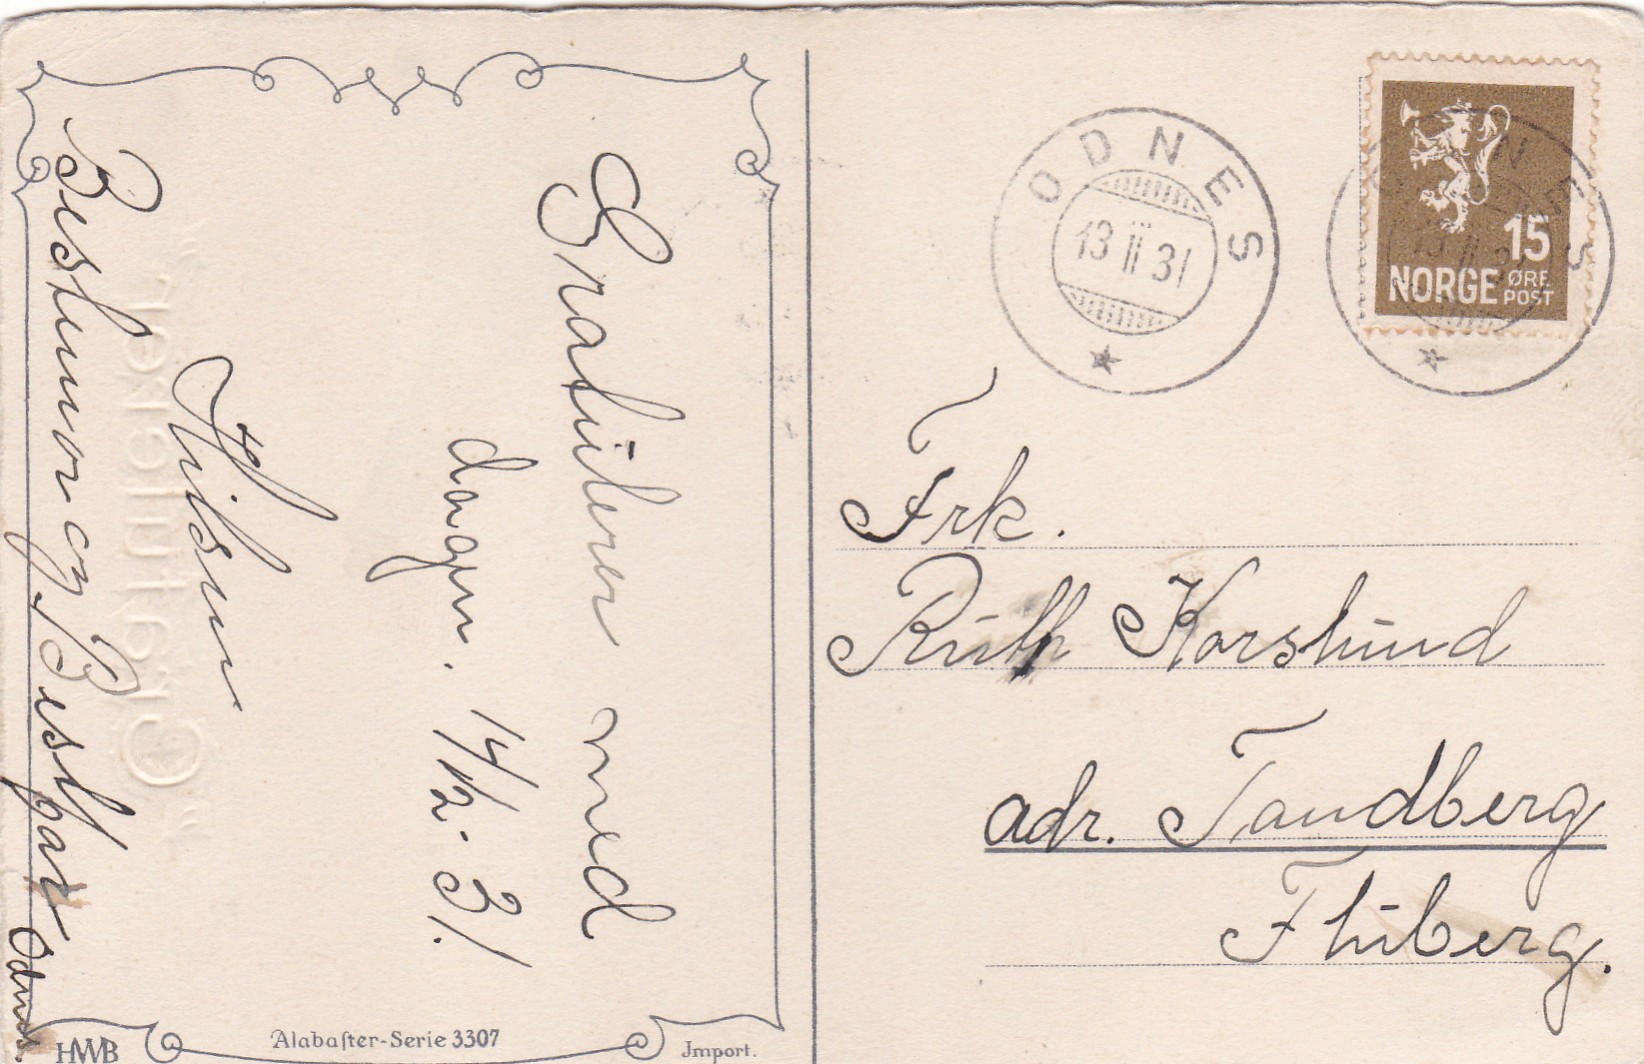 Gratulerer med
dagen. 14/2-31.
Hilsen
Bestemor og Bestefar
Odnes.
HWB
Alabaster-Serie 3307
Import.
Gratuleret
ODNES
13 II 31
15
NORGE ØRE
POST
Frk.
Ruth Korslund
adr. Tandberg
Fluberg.